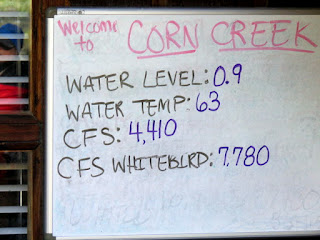 Welcome to CORN CREEK
WATER LEVEL: 0.9
WATER TEMP: 63
CFS: 4,410
CFS WHITEBIRD: 7,780